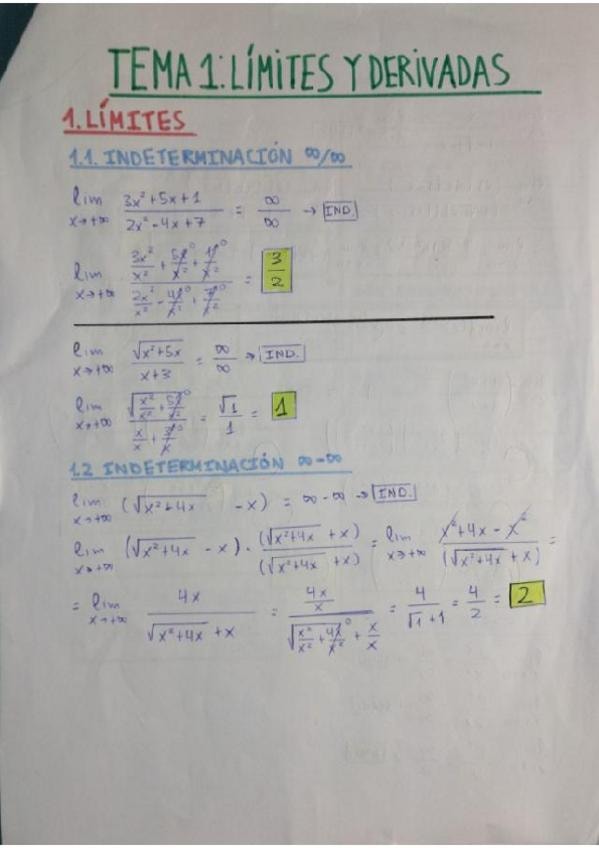 TEMA 1: LÍMITES Y DERIVADAS
1. LÍMITES
1.1. INDETERMINACIÓN ∞/∞
lim x→+∞ (3x²+5x+1)/(2x²-4x+7) = ∞/∞ → IND.
lim x→+∞ (3x²/x² + 5x/x² ⁰ + 1/x² ⁰)/(2x²/x² - 4x/x² ⁰ + 7/x² ⁰) = 3/2
lim x→+∞ √(x²+5x)/(x+3) = ∞/∞ → IND.
lim x→+∞ √(x²/x² + 5x/x² ⁰)/(x/x + 3/x ⁰) = √1/1 = 1
1.2 INDETERMINACIÓN ∞-∞
lim x→+∞ (√(x²+4x) - x) = ∞-∞ → IND.
lim x→+∞ (√(x²+4x) - x) · (√(x²+4x) + x)/(√(x²+4x) + x) = lim x→+∞ (x²+4x - x²)/(√(x²+4x) + x) =
= lim x→+∞ 4x/(√(x²+4x) + x) = (4x/x)/(√(x²/x² + 4x/x² ⁰) + x/x) = 4/(√1 + 1) = 4/2 = 2